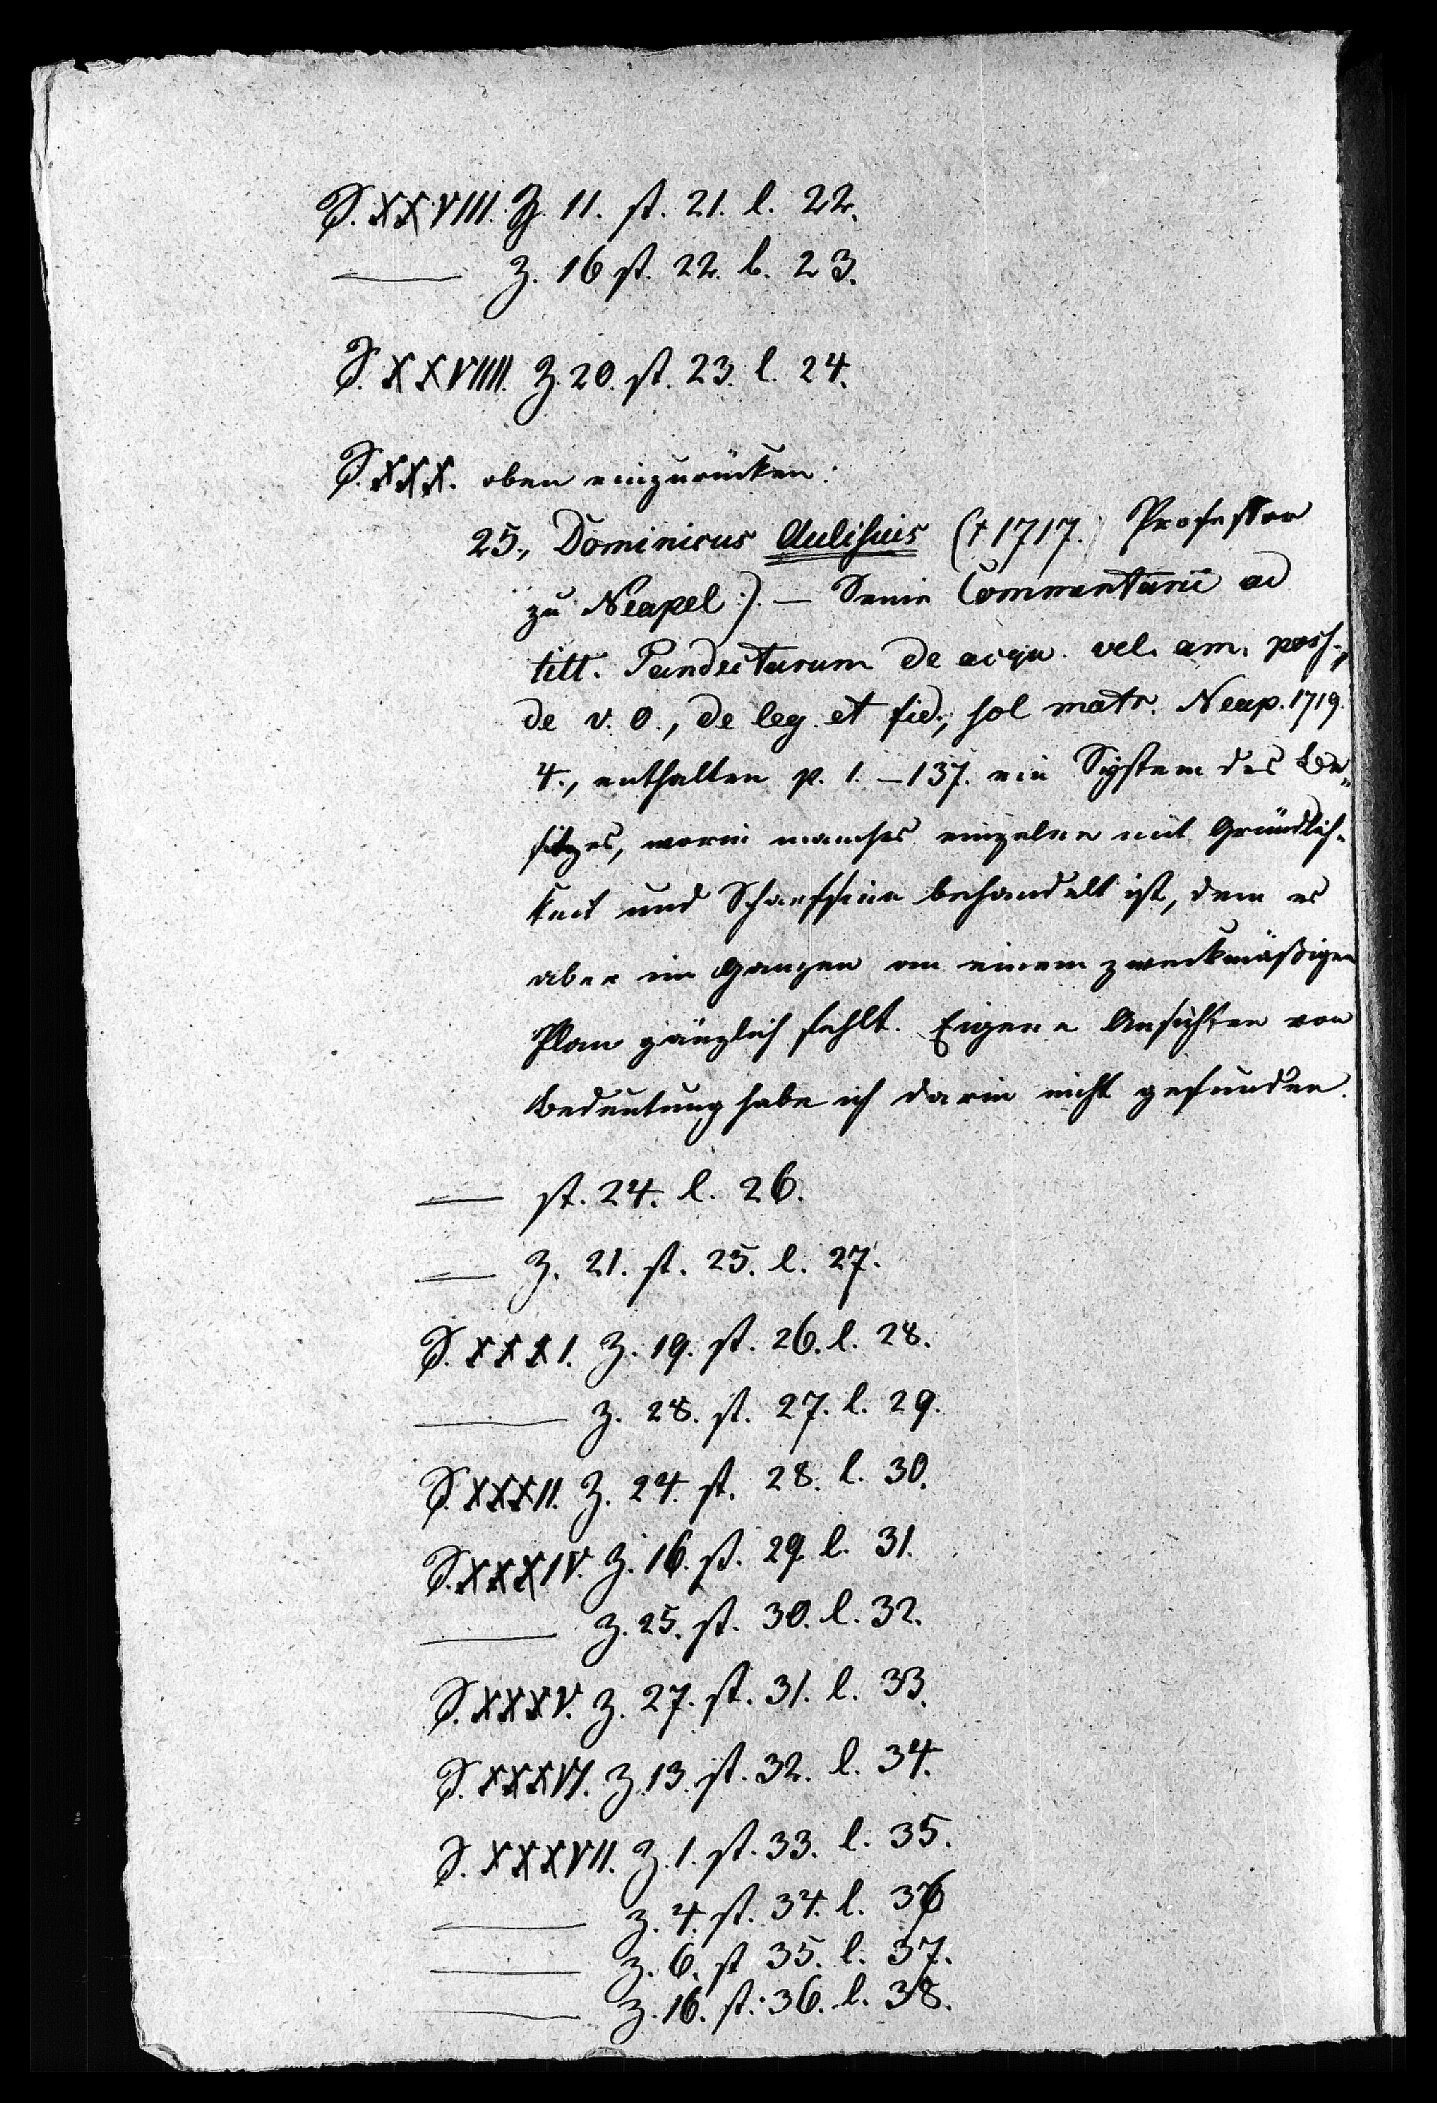 S. XXVIII. Z. 11. st. 21. l. 22.
—— Z. 16 st. 22. l. 23.
S. XXVIIII. Z. 20. st. 23. l. 24.
S. XXX. oben einzurücken:
25., Dominicus Aulisius († 1717. Professor
zu Neapel:). — Seine Commentarii ad
titt. Pandectarum de acqu. vel. am. poss.,
de v. o., de leg. et fid., sol matr. Neap. 1719.
4., enthalten p. 1. – 137. ein System des Be„
sitzes, worin manches einzelne mit Gründlich„
keit und Scharfsinn behandelt ist, dem es
aber im Ganzen an einem zweckmäßigen
Plan gänzlich fehlt. Eigene Ansichten von
Bedeutung habe ich darin nicht gefunden.
— st. 24. l. 26.
— Z. 21. st. 25. l. 27.
S. XXXI. Z. 19. st. 26. l. 28.
—— Z. 28. st. 27. l. 29.
S. XXXII. Z. 24. st. 28. l. 30.
S. XXXIV. Z. 16. st. 29. l. 31.
—— Z. 25. st. 30. l. 32.
S. XXXV. Z. 27. st. 31. l. 33.
S. XXXVI. Z. 13. st. 32. l. 34.
S. XXXVII. Z. 1. st. 33. l. 35.
—— Z. 4. st. 34. l. 36
—— Z. 6. st 35. l. 37.
—— Z. 16. st. 36. l. 38.